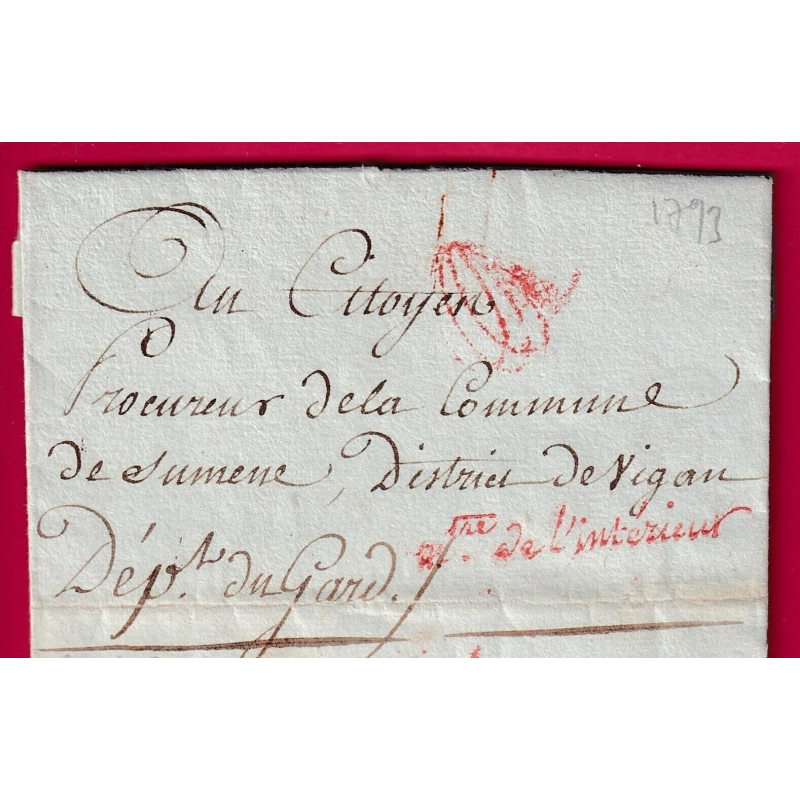 1793
Au Citoyen
Procureur de la Commune
de Sumene, District de Vigan
Dépt. du Gard.
mtre. de l'intérieur